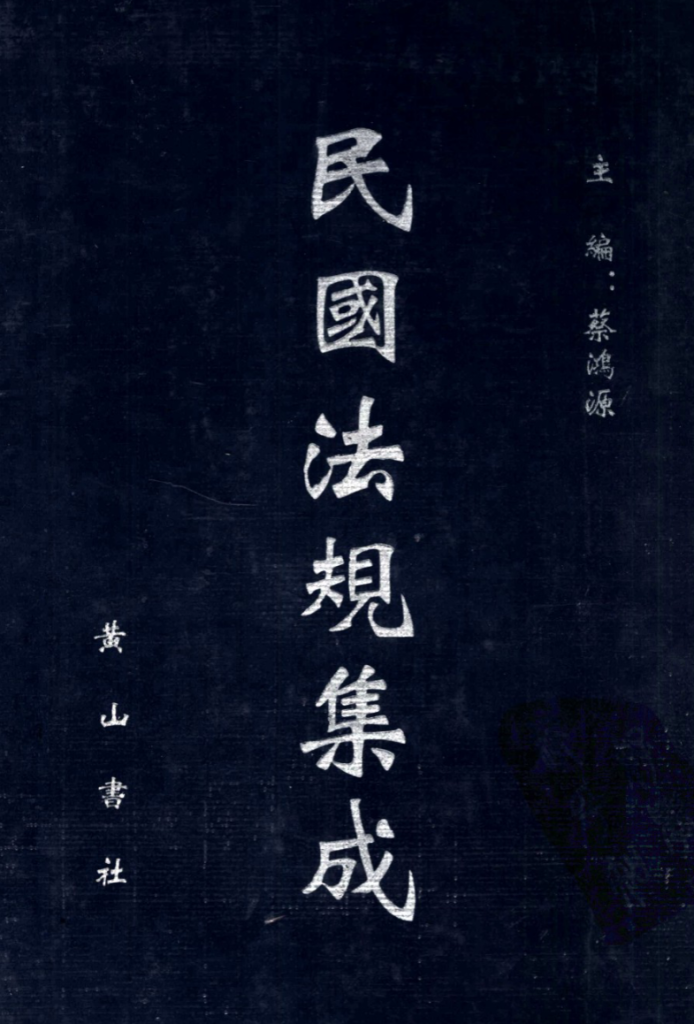 主編：蔡鴻源
民國法規集成
黃山書社